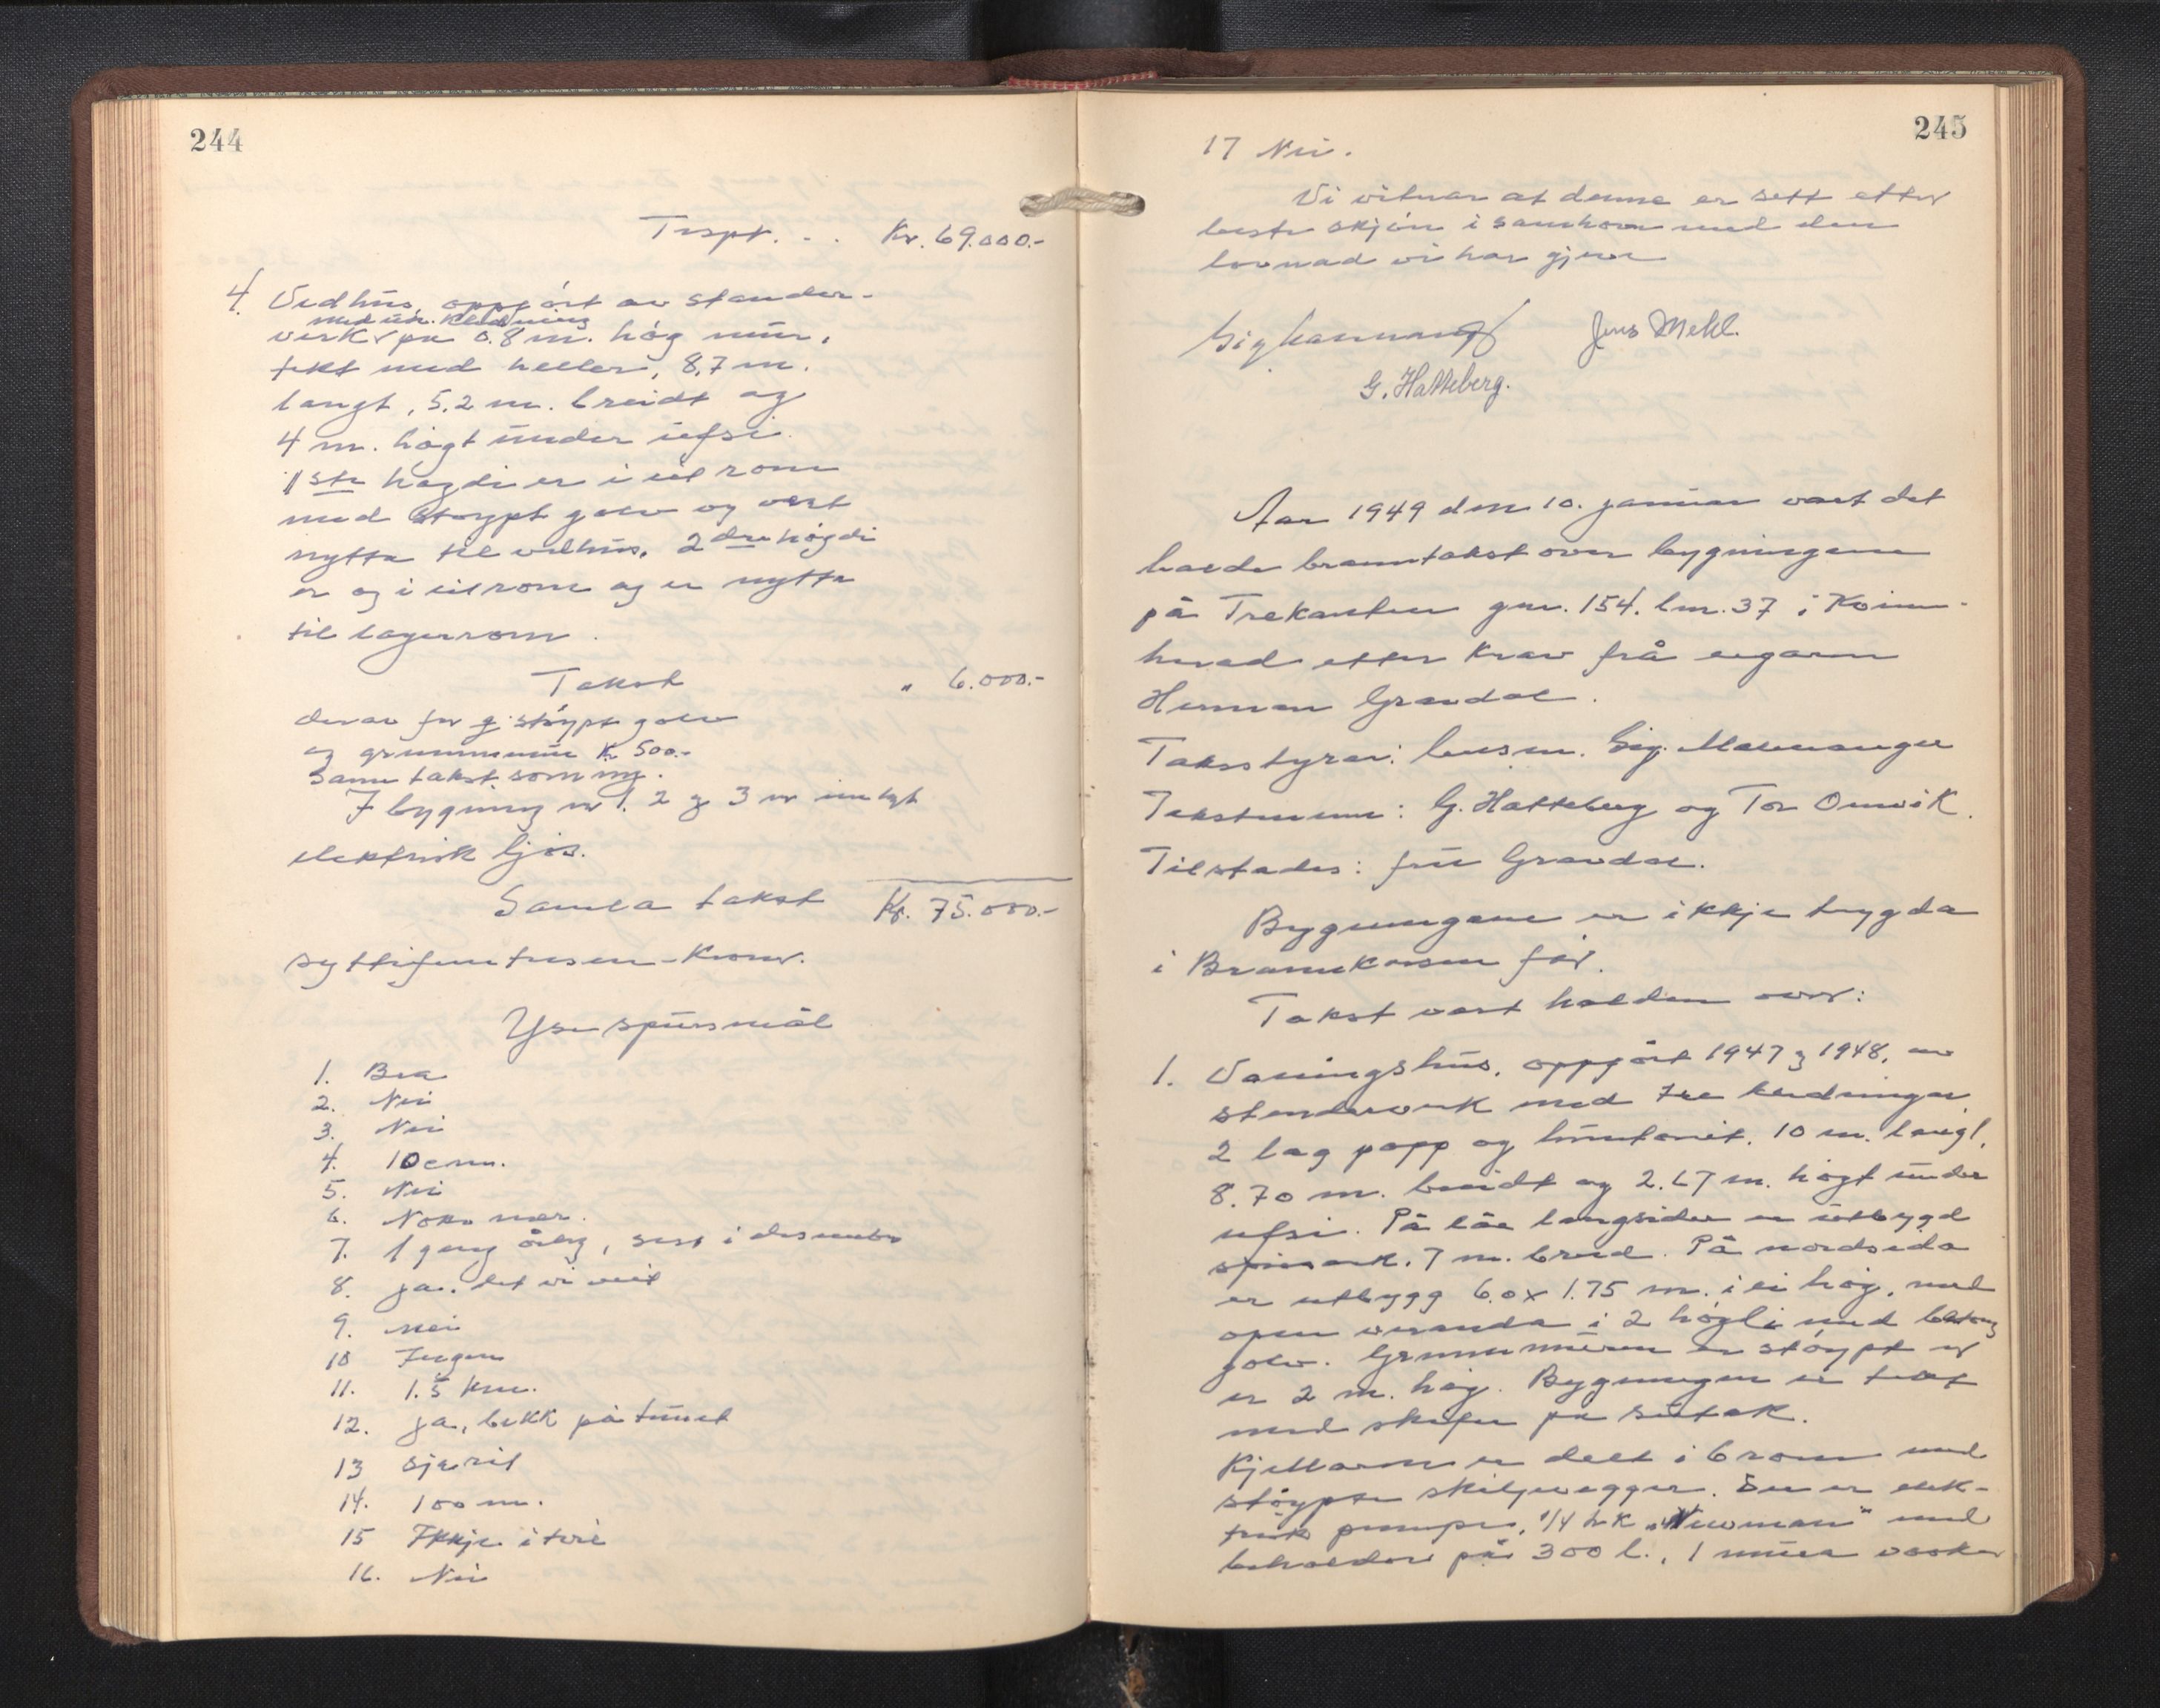 244
Trspt. . . Kr. 69.000.-
4. Vedhus, oppført av stender-
med utv. kledning
verk på 0.8 m. høg mur,
tekt med heller, 8,7 m.
langt, 5.2 m. breidt og
4 m. høgt under ufsi.
1ste høgdi er i eit rom
med støypt golv og vert
nytta til vedhus. 2dre høgdi
er og i eit rom og er nytta
til lagerrom.
Takst " 6.000.-
derav for g. støypt golv
og grunnmur Kr 500.-
Same takst som ny.
I bygning nr 1, 2 og 3 er innlagt
elektrisk ljos.
Samla takst Kr. 75.000.-
syttifemtusen - Kroner.
Yse spursmål
1. Bra
2. Nei
3. Nei
4. 10 cm.
5. Nei
6. Noko mer.
7. 1 gang årleg, sist i desember
8. ja, det vi veit
9. nei
10 Ingen
11. 1.5 km.
12. ja, bekk på tunet
13 sjæreit
14. 100 m.
15 Ikkje i tvie
16. Nei
245
17 Nei.
Vi vitnar at denne er sett etter
beste skjøn i samhøve med den
lovnad vi har gjeve
Sig Malmanger Jens Mehl.
G. Hatteberg.
Aar 1949 den 10. januar vart det
halde branntakst over bygningane
på Trekanten gnr. 154. bnr. 37 i Kvinn-
herad etter krav frå eigaren
Herman Gravdal.
Takststyrar: lensm. Sig. Malmanger
Takstmenn: G. Hatteberg og Tor Omvik.
Tilstades: fru Gravdal.
Bygningane er ikkje trygda
i Brannkassen før.
Takst vart halden over:
1. Vaaningshus, oppført 1947 og 1948, av
stenderverk med tre kledningar
2 lag papp og huntonit. 10 m. langt,
8.70 m. breidt og 2.67 m. høgt under
ufsi. På låe langsider er utbygd
ark. 7 m. breid. På nordsida
er utbygg 6.0 x 1.75 m. i ei høg, med
open veranda i 2 høgdi med betong
golv. Grunnmuren er støypt og
er 2 m. høg. Bygningen er tekt
med skifer på sutak.
Kjellaren er delt i 6 rom med
støypte skiljevegger. Der er elek-
trisk pumpe, 1/4 h.k. „Newman" med
behaldar på 300 l., 1 mura vaske